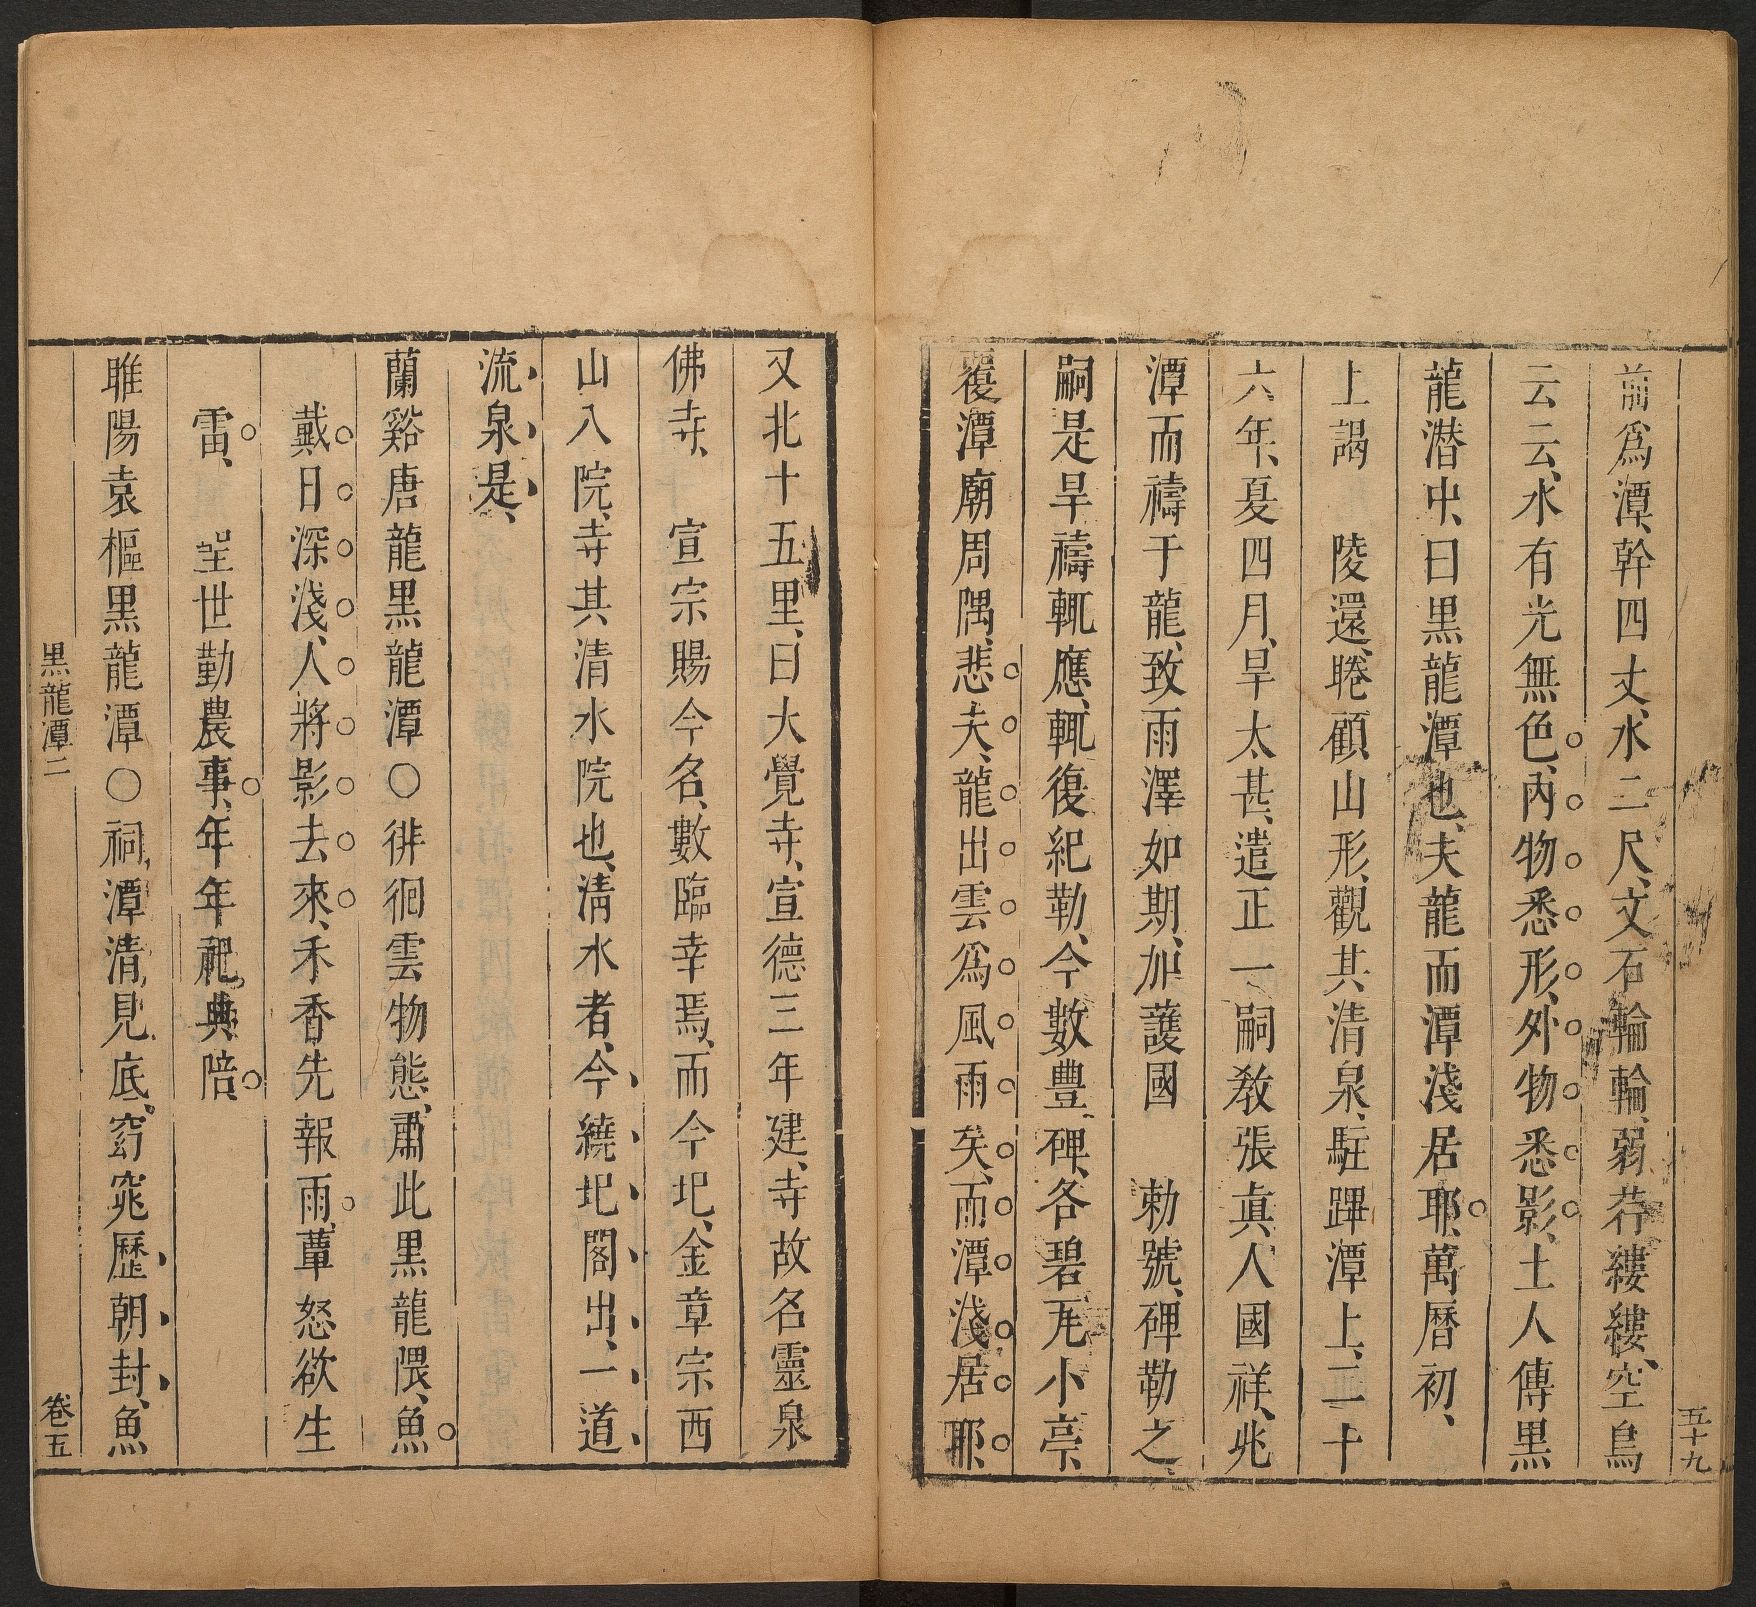 五十九
前爲潭、幹四丈、水二尺、文石輪輪、弱荇縷縷、空鳥
云云、水有光無色、內物悉形、外物悉影、土人傳黑
龍潛中、曰黑龍潭也、夫龍而潭淺居耶、萬曆初、
上謁　陵還、睠顧山形、觀其清泉、駐蹕潭上、二十
六年、夏四月、旱太甚、遣正一嗣教張眞人國祥、兆
潭而禱于龍、致雨澤如期、加護國　勅號、碑勒之、
嗣是旱禱輒應、輒復紀勒、今數豐碑、各碧瓦小亭、
覆潭廟周隅、悲夫、龍出雲爲風雨矣、而潭淺居耶、
又北十五里、曰大覺寺、宣德三年建、寺故名靈泉
佛寺、　宣宗賜今名、數臨幸焉、而今圮、金章宗西
山八院、寺其清水院也、清水者、今繞圮閣出、一道
流泉是、
蘭谿唐龍黑龍潭○徘徊雲物態、肅此黑龍隈、魚
戴日深淺、人將影去來、禾香先報雨、蕈怒欲生
雷、　聖世勤農事、年年祀典陪、
睢陽袁樞黑龍潭○祠潭清見底、窈窕歷朝封、魚
黑龍潭二
卷五